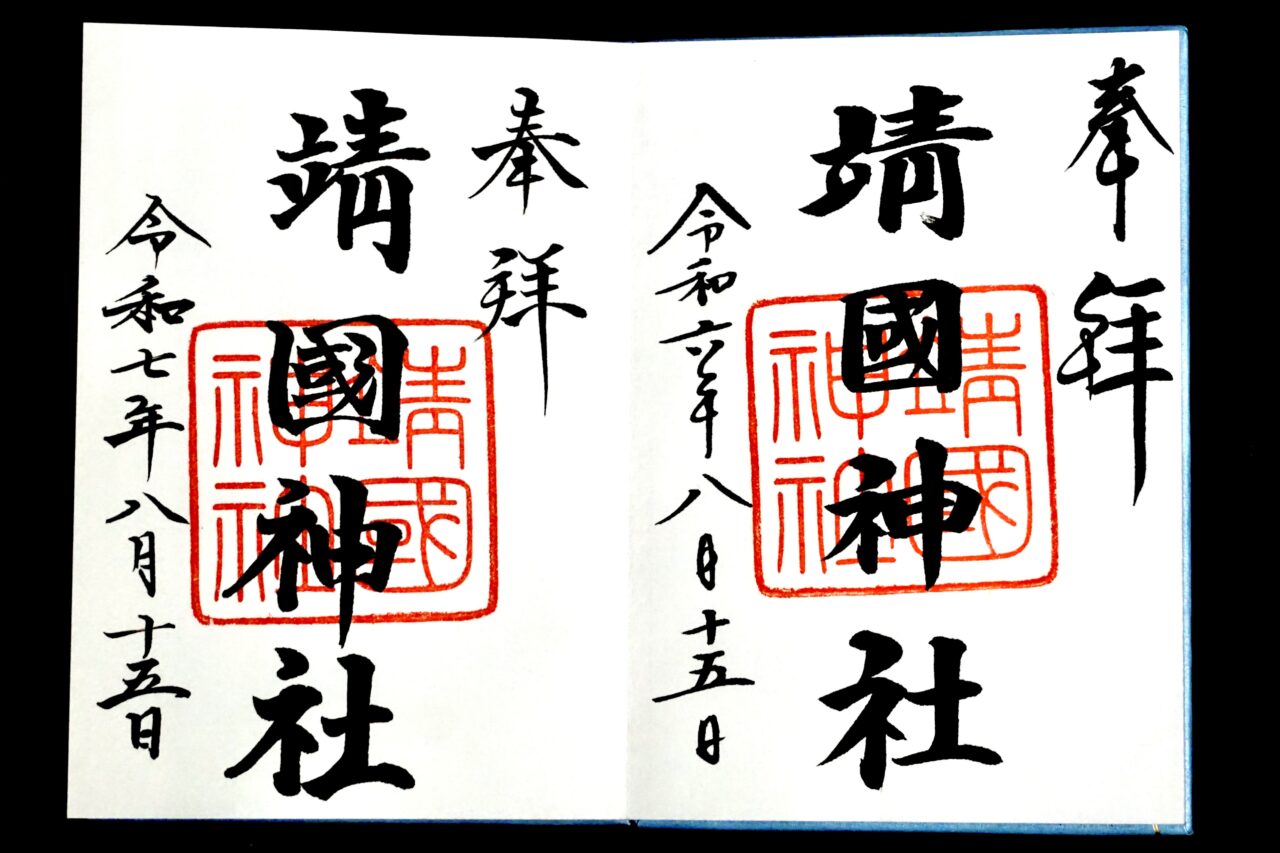 奉拝
靖國神社
靖國神社
令和六年八月十五日
奉拝
靖國神社
靖國神社
令和七年八月十五日